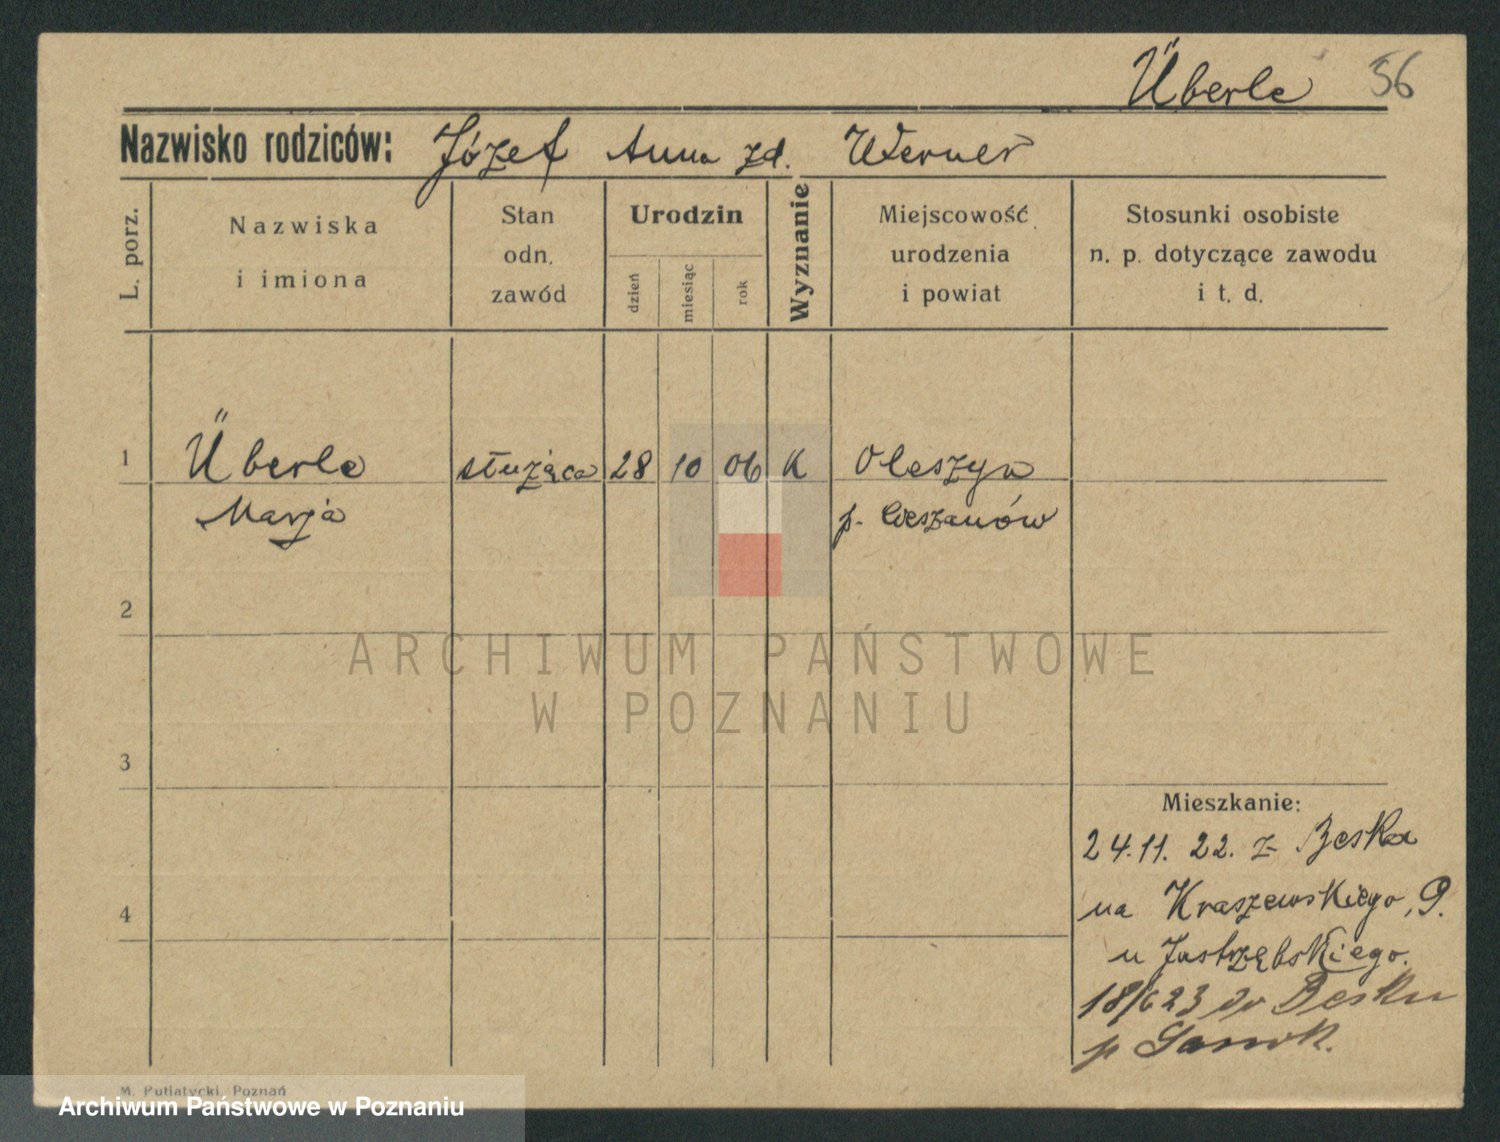 Überle 56
Nazwisko rodziców: Józef Anna zd. Werner
L. porz.
Nazwiska
i imiona
Stan
odn.
zawód
Urodzin
dzień
miesiąc
rok
Wyznanie
Miejscowość
urodzenia
i powiat
Stosunki osobiste
n. p. dotyczące zawodu
i t. d.
1 Überle służąca 28 10 06 K Oleszyn
Marja p. Cieszanów
2
ARCHIWUM PAŃSTWOWE
W POZNANIU
3
Mieszkanie:
24.11. 22. z Beska
na Kraszewskiego, 9.
4
u Jastrzębskiego.
18/6 23 do Beska
p Sanok.
M. Putiatycki, Poznań
Archiwum Państwowe w Poznaniu